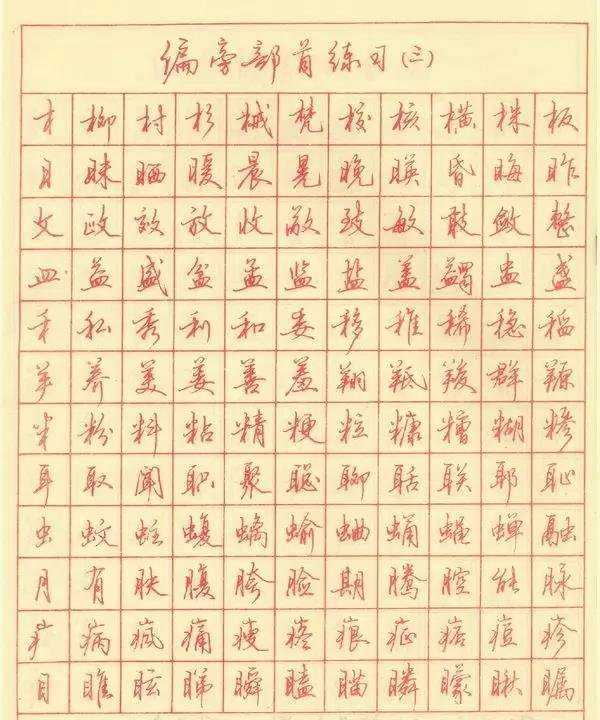 偏旁部首练习(三)
木 柳 村 杉 械 梵 校 核 横 株 板
日 昧 晒 暖 晨 晃 晚 暎 昏 晦 昨
攵 政 效 放 收 敌 敏 敲 敛 整
皿 益 盛 盆 孟 监 盐 盖 蠲 盅 盏
禾 私 秀 利 和 委 移 稚 稀 稳 稻
羊 养 美 姜 善 羞 翔 羝 羧 群
米 粉 料 粘 精 粳 粒 糠 糟 糊 糁
耳 取 闻 职 聚 聪 聊 聒 联 耶 耻
虫 蚊 蛀 蝮 螭 蝓 蛐 蛹 蝇 蝉 融
月 有 肤 腹 胯 脸 期 腾 腔 能 脉
疒 病 疯 痛 瘦 疼 痕 症 痞 痘 疹
目 睢 眩 睇 瞬 瞌 瞄 瞵 矇 瞅 瞩